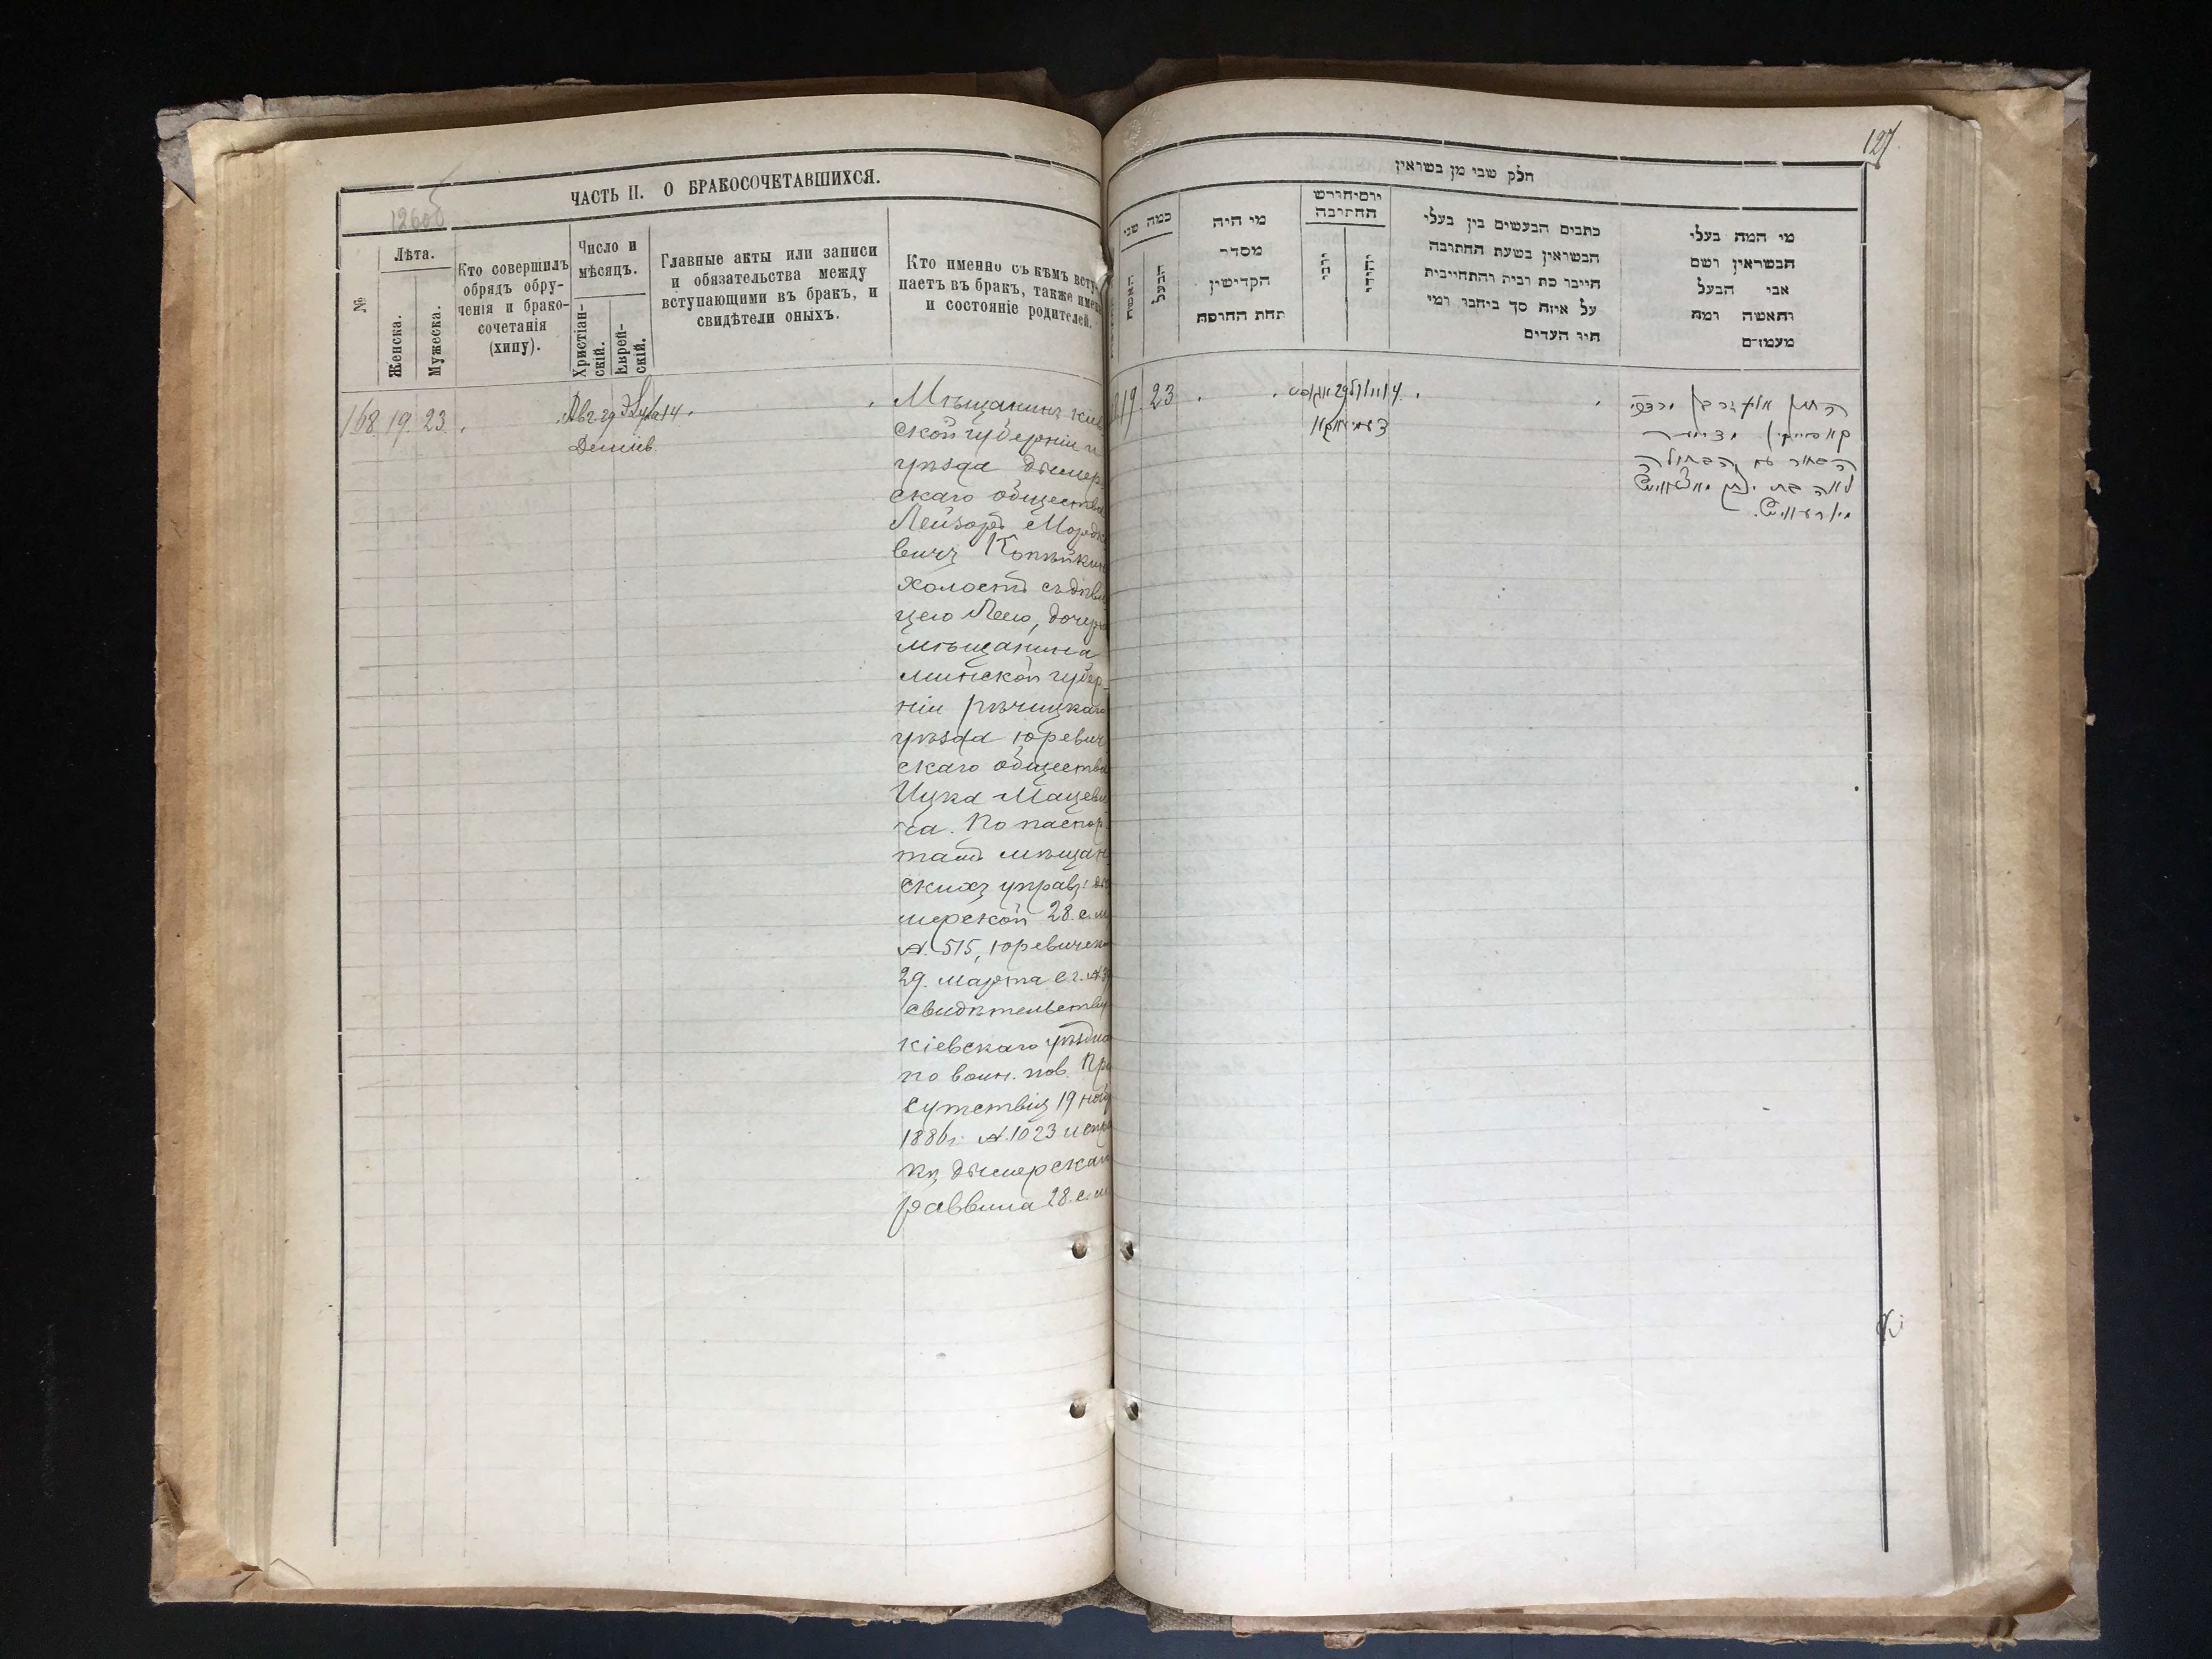 126об
ЧАСТЬ II. О БРАКОСОЧЕТАВШИХСЯ.
№
Лѣта.
Женска.
Мужеска.
Кто совершилъ
обрядъ обру-
ченія и брако-
сочетанія
(хипу).
Число и
мѣсяцъ.
Христіан-
скій.
Еврей-
скій.
Главные акты или записи
и обязательства между
вступающими въ бракъ, и
свидѣтели оныхъ.
Кто именно съ кѣмъ всту-
паетъ въ бракъ, также имена
и состояніе родителей.
168 19. 23. Авг 29 Элула 14.
Деміев.
Мѣщанинъ кіев
ской губерніи и
уѣзда дымер
скаго общества
Лейзоръ Мордко
вичъ Копѣйкинъ
холостъ съ дѣви
цею Леею, дочерью
мѣщанина
минской губер-
ніи рѣчицкаго
уѣзда юревич
скаго общества
Ицка Мацеви
ча. По паспор
тамъ мѣщан
скихъ управъ: ды
мерской 28. с. м
№. 515, юревичской
29. марта с г. №
свидѣтельству
кіевскаго уѣзднаго
по воин. пов. При
сутствія 19 нояб
1886 г. №. 1023 и спра
кѣ дымерскаго
раввина 28. с. м
127.
חלק שני מן נשואין
כמה שני
האשה
הבעל
מי היה
מסדר
הקדושין
תחת החופה
יום וחודש
החתונה
כתבים הנעשים בין בעלי
הנשואין בשעת החתונה
על איזה סך ביחבו ומי
היו העדים
מי המה בעלי
הנשואין ושם
אבי הבעל
והאשה ומה
מעמדם
19. 23.
החתן אליעזר בן מרדכי
קאפייקין מדימער
הבחור עם הבתולה
לאה בת יצחק מאצעוויטש